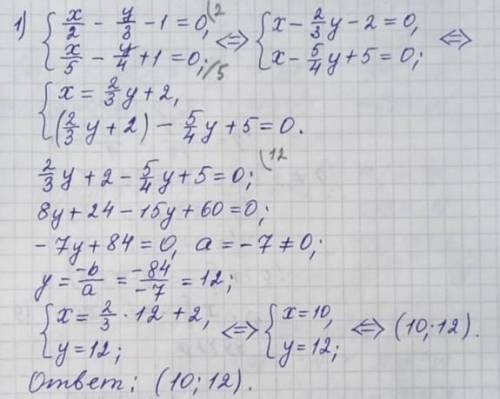 1) { x/2 - y/3 - 1 = 0, |2 ⇔ { x - 2/3 y - 2 = 0, ⇔
x/5 - y/4 + 1 = 0; |5 x - 5/4 y + 5 = 0;
{ x = 2/3 y + 2,
(2/3 y + 2) - 5/4 y + 5 = 0.
2/3 y + 2 - 5/4 y + 5 = 0; |12
8y + 24 - 15y + 60 = 0;
-7y + 84 = 0, a = -7 ≠ 0;
y = -b/a = -84/-7 = 12;
{ x = 2/3 · 12 + 2, ⇔ { x = 10, ⇔ (10; 12).
y = 12; y = 12;
Ответ: (10; 12).